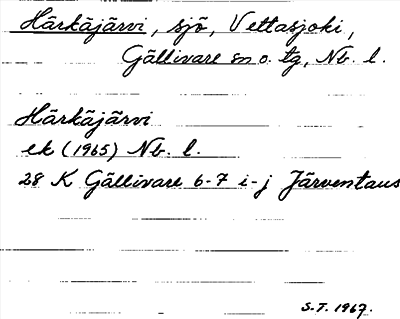 Härkäjärvi, sjö, Vettasjoki,
Gällivare sn o. tg, Nb. l.
Härkäjärvi
ek (1965) Nb. l.
28 K Gällivare 6-7 i-j Järventaus
S.T. 1967.